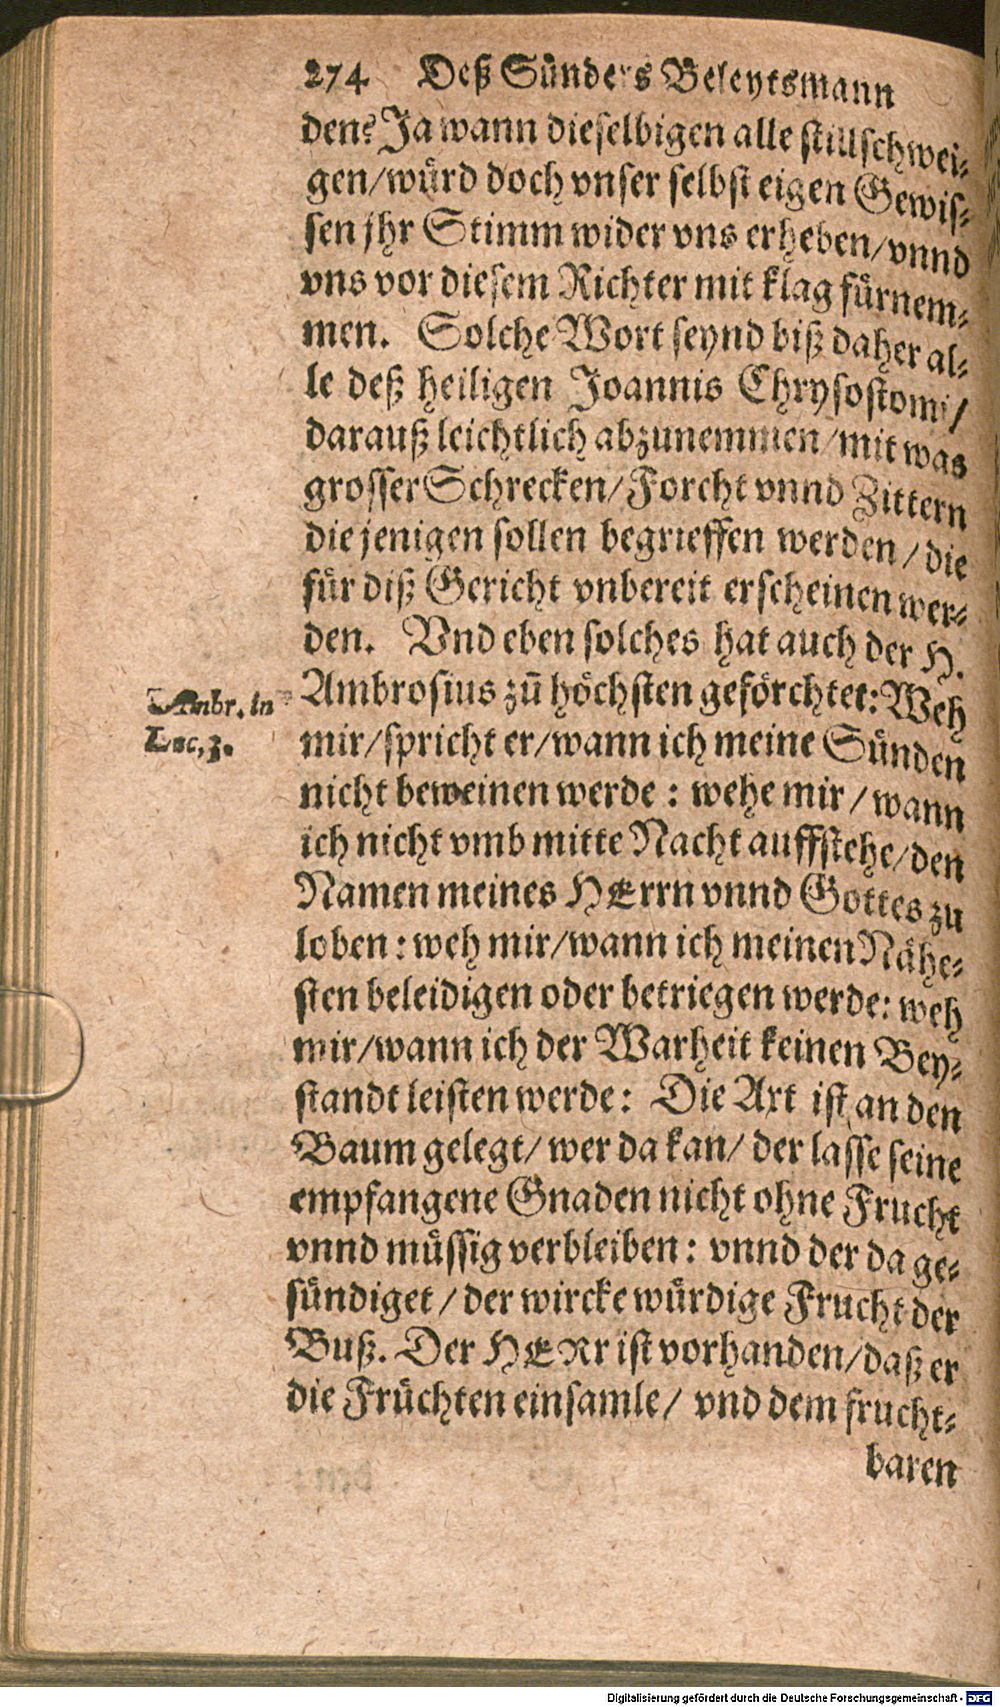 274 Deß Sünders Beleytsmann
den? Ja wann dieselbigen alle stillschwei-
gen/würd doch vnser selbst eigen Gewis-
sen jhr Stimm wider vns erheben/vnnd
vns vor diesem Richter mit klag fürnem-
men. Solche Wort seynd biß daher al-
le deß heiligen Joannis Chrysostomi/
darauß leichtlich abzunemmen/mit was
grosser Schrecken/Forcht vnnd Zittern
die jenigen sollen begrieffen werden/die
für diß Gericht vnbereit erscheinen wer-
den. Vnd eben solches hat auch der H.
Ambrosius zū höchsten geförchtet: Weh
Ambr. in
Luc, 3.
mir/spricht er/wann ich meine Sünden
nicht beweinen werde: wehe mir/wann
ich nicht vmb mitte Nacht auffstehe/den
Namen meines HErrn vnnd Gottes zu
loben: weh mir/wann ich meinen Nähe-
sten beleidigen oder betriegen werde: weh
mir/wann ich der Warheit keinen Bey-
standt leisten werde: Die Axt ist an den
Baum gelegt/ wer da kan/ der lasse seine
empfangene Gnaden nicht ohne Frucht
vnnd müssig verbleiben: vnnd der da ge-
sündiget/der wircke würdige Frucht der
Buß. Der HERr ist vorhanden/daß er
die Früchten einsamle/ vnd dem frucht-
baren
Digitalisierung gefördert durch die Deutsche Forschungsgemeinschaft - DFG